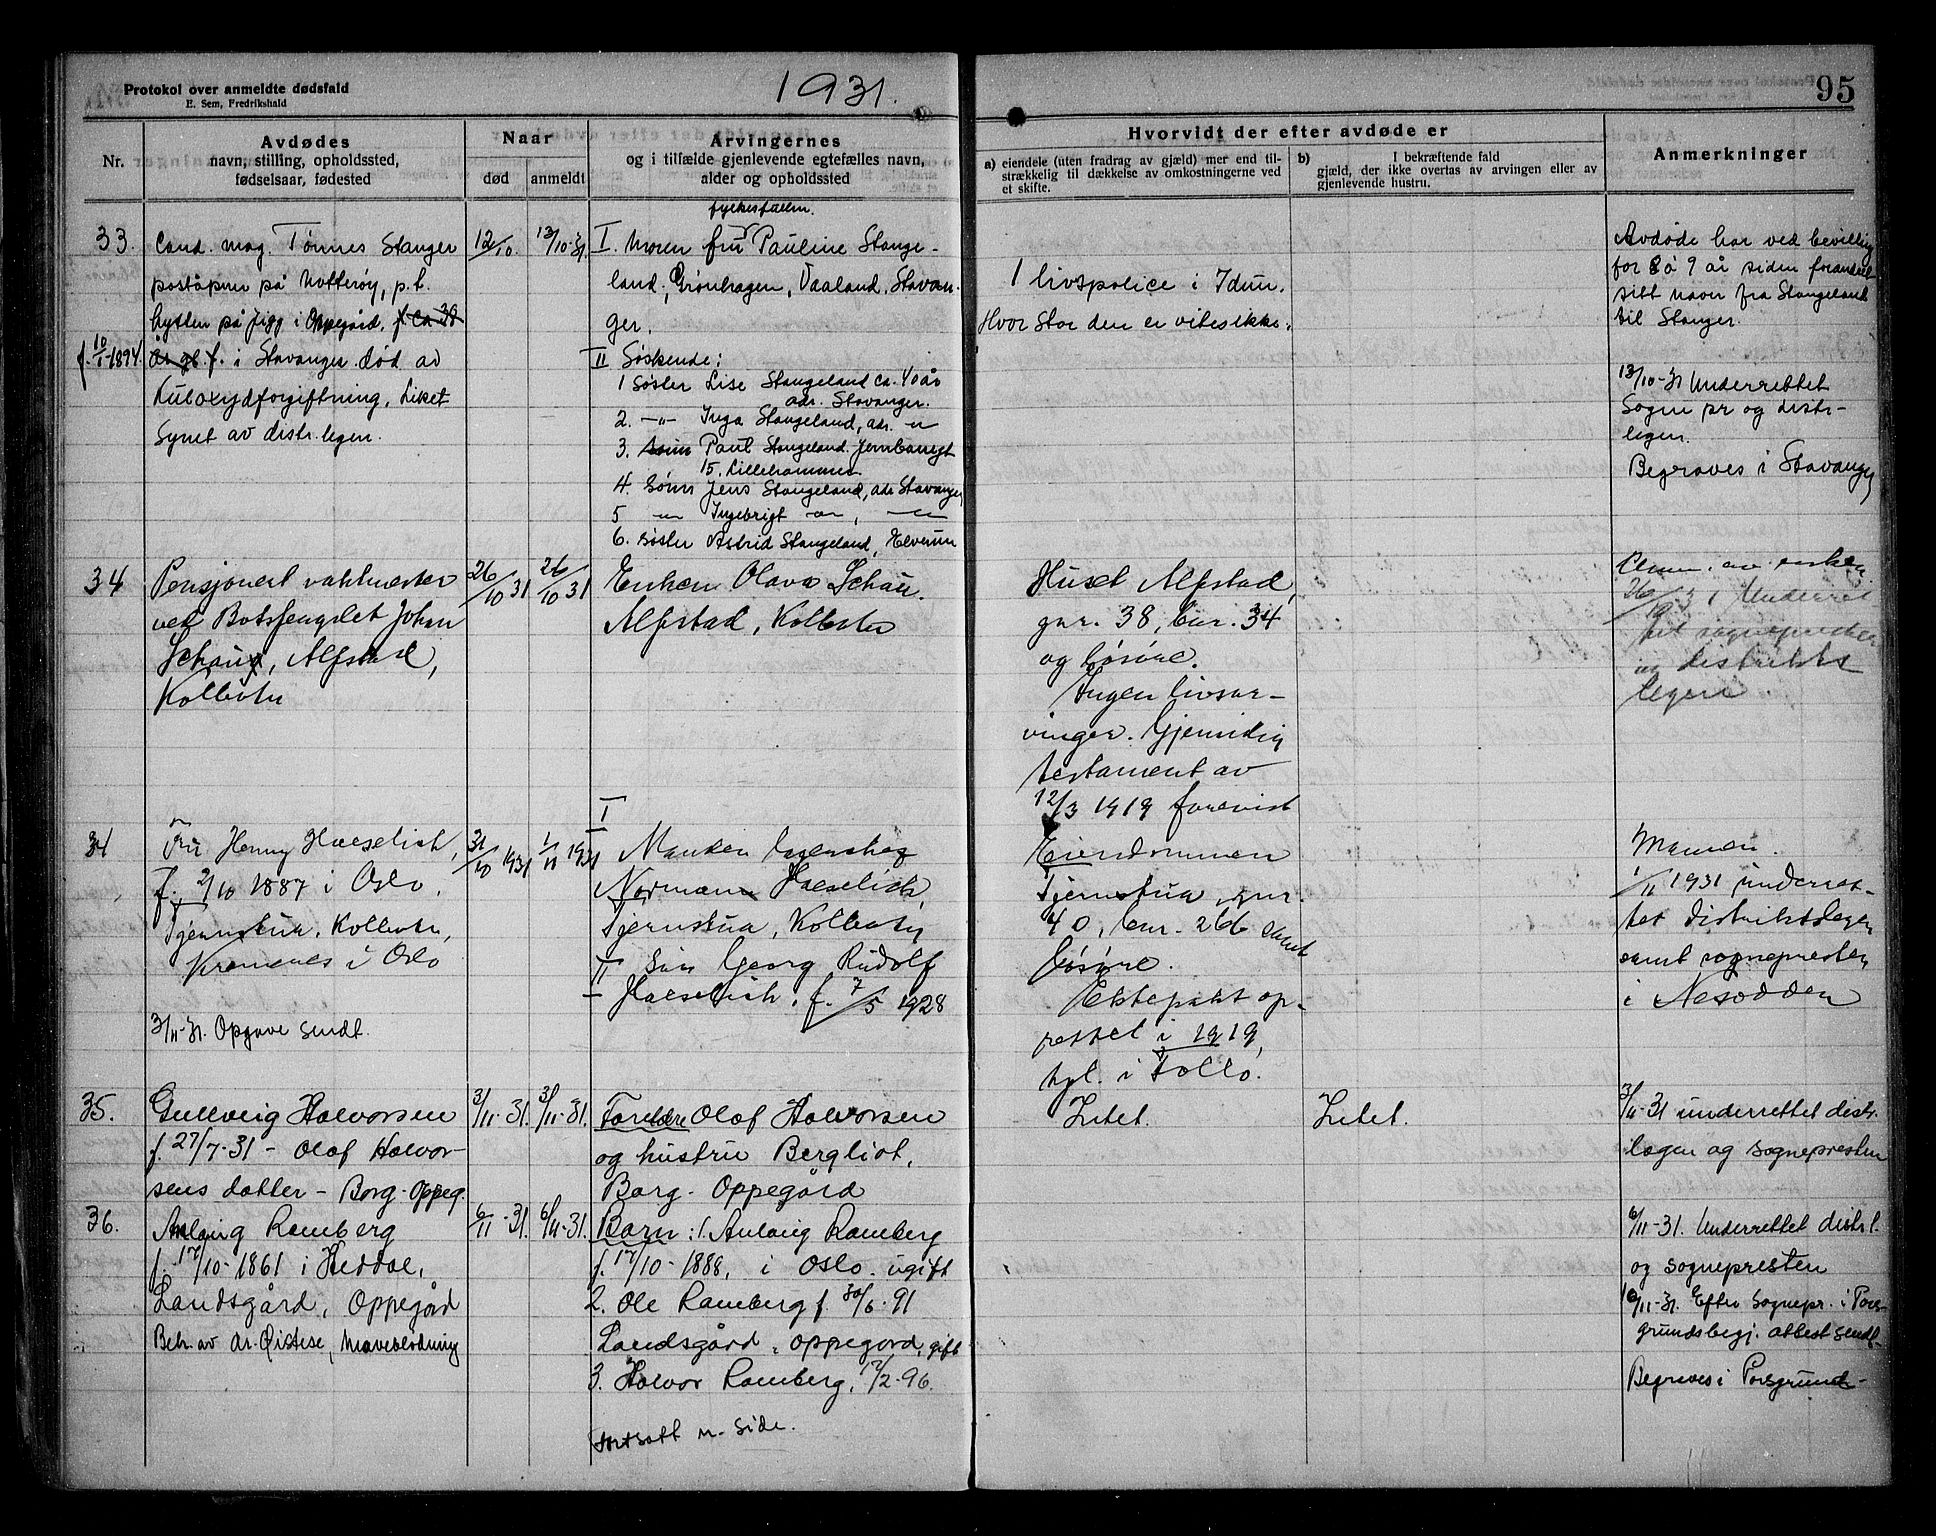 Protokol over anmeldte dødsfald
E. Sem, Fredrikshald
1931.
95
Nr.
Avdødes
navn, stilling, opholdssted,
fødselsaar, fødested
Naar
død
anmeldt
Arvingernes
og i tilfælde gjenlevende egtefælles navn,
alder og opholdssted
Hvorvidt der efter avdøde er
a) eiendele (uten fradrag av gjæld) mer end til-
strækkelig til dækkelse av omkostningerne ved
et skifte.
b) I bekræftende fald
gjæld, der ikke overtas av arvingen eller av
gjenlevende hustru.
Anmerkninger
33.
Cand. mag. Tønnes Stanger
poståpner på Nøtterøy, p.t.
hytten på Jigg i Oppegård, f. ca 38
f. 10/1-1894
år gl. f. i Stavanger død av
Kuloxydforgiftning. Liket
Synet av distr. legen.
12/10.
13/10-31
I. Moren fru Pauline Stange-
land, Grønhagen, Vaaland, Stavan-
ger.
II Søskende:
1 Søster Lise Stangeland ca. 40 år
adr. Stavanger.
2. -"- Inga Stangeland, adr. -"-
3. Paul Stangeland. Jernbanegt
15, Lillehammer
4. Sønn Jens Stangeland, adr Stavanger
5 -"- Ingebrigt -"-, -"-
6. søster Astrid Stangeland, Elverum
1 livspolice i Idun.
Hvor stor den er vites ikke.
Avdøde har ved bevilling
for 8 à 9 år siden forandret
sitt navn fra Stangeland
til Stanger.
13/10-31 Underrettet
Sogne pr og distr-
legen.
Begraves i Stavanger
34
Pensjonert vaktmester
ved Botsfengslet Johan
Schau, Alfstad,
Kolbotn
26/10 31
26/10 31
Enken Olava Schau.
Alfstad, Kolbotn
Huset Alfstad,
gnr. 38, bnr. 34
og løsøre.
Ingen livsar-
vinger. Gjensidig
testament av
12/3 1919 forevist
Anm. av enken
26/10 31 Underret
tet sognepresten
og distrikts
legen
34
Fru Henny Haeselich,
f. 2/10 1887 i Oslo.
Tjernstua, Kolbotn,
Kremeres i Oslo
3/11-31. Opgave sendt.
31/10 1931
1/11 1931
I
Manken
Normann Haeselich,
Tjernstua, Kolbotn
II Søn Georg Rudolf
Haeselich, f. 7/5 1928
Eiendommen
Tjernstua, gnr.
40, bnr. 266 samt
løsøre.
Ektepakt op-
rettet i 1919,
tgl. i Follo.
Mannen.
1/11 1931 underret-
tet distriktslegen
samt sognepresten
i Nesodden
35.
Gullveig Halvorsen
f. 27/7-31 - Olaf Halvor-
sens datter - Borg-Oppeg.
3/11-31.
3/11-31.
Foreldre Olaf Halvorsen
og hustru Bergliot,
Borg - Oppegård
Intet.
Intet.
3/11-31 underrettet distr.
legen og sognepresten
36.
Aslaug Ramberg
f. 17/10-1861 i Heddal,
Landsgård, Oppegård
Beh. av dr. Qistese, Maveblødning
6/11-31.
6/11-31.
Barn: 1. Aslaug Ramberg
f. 17/10-1888, i Oslo. ugift
2. Ole Ramberg f. 30/6-91
Landsgård, Oppegård, gift
3. Halvor Ramberg, 12/2-96.
Fortsatt n. side.
6/11-31. Underrettet distr.l.
og sognepresten
10/11-31. Efter Sognepr. i Pors-
grunds begj. attest sendt.
Begraves i Porsgrund-